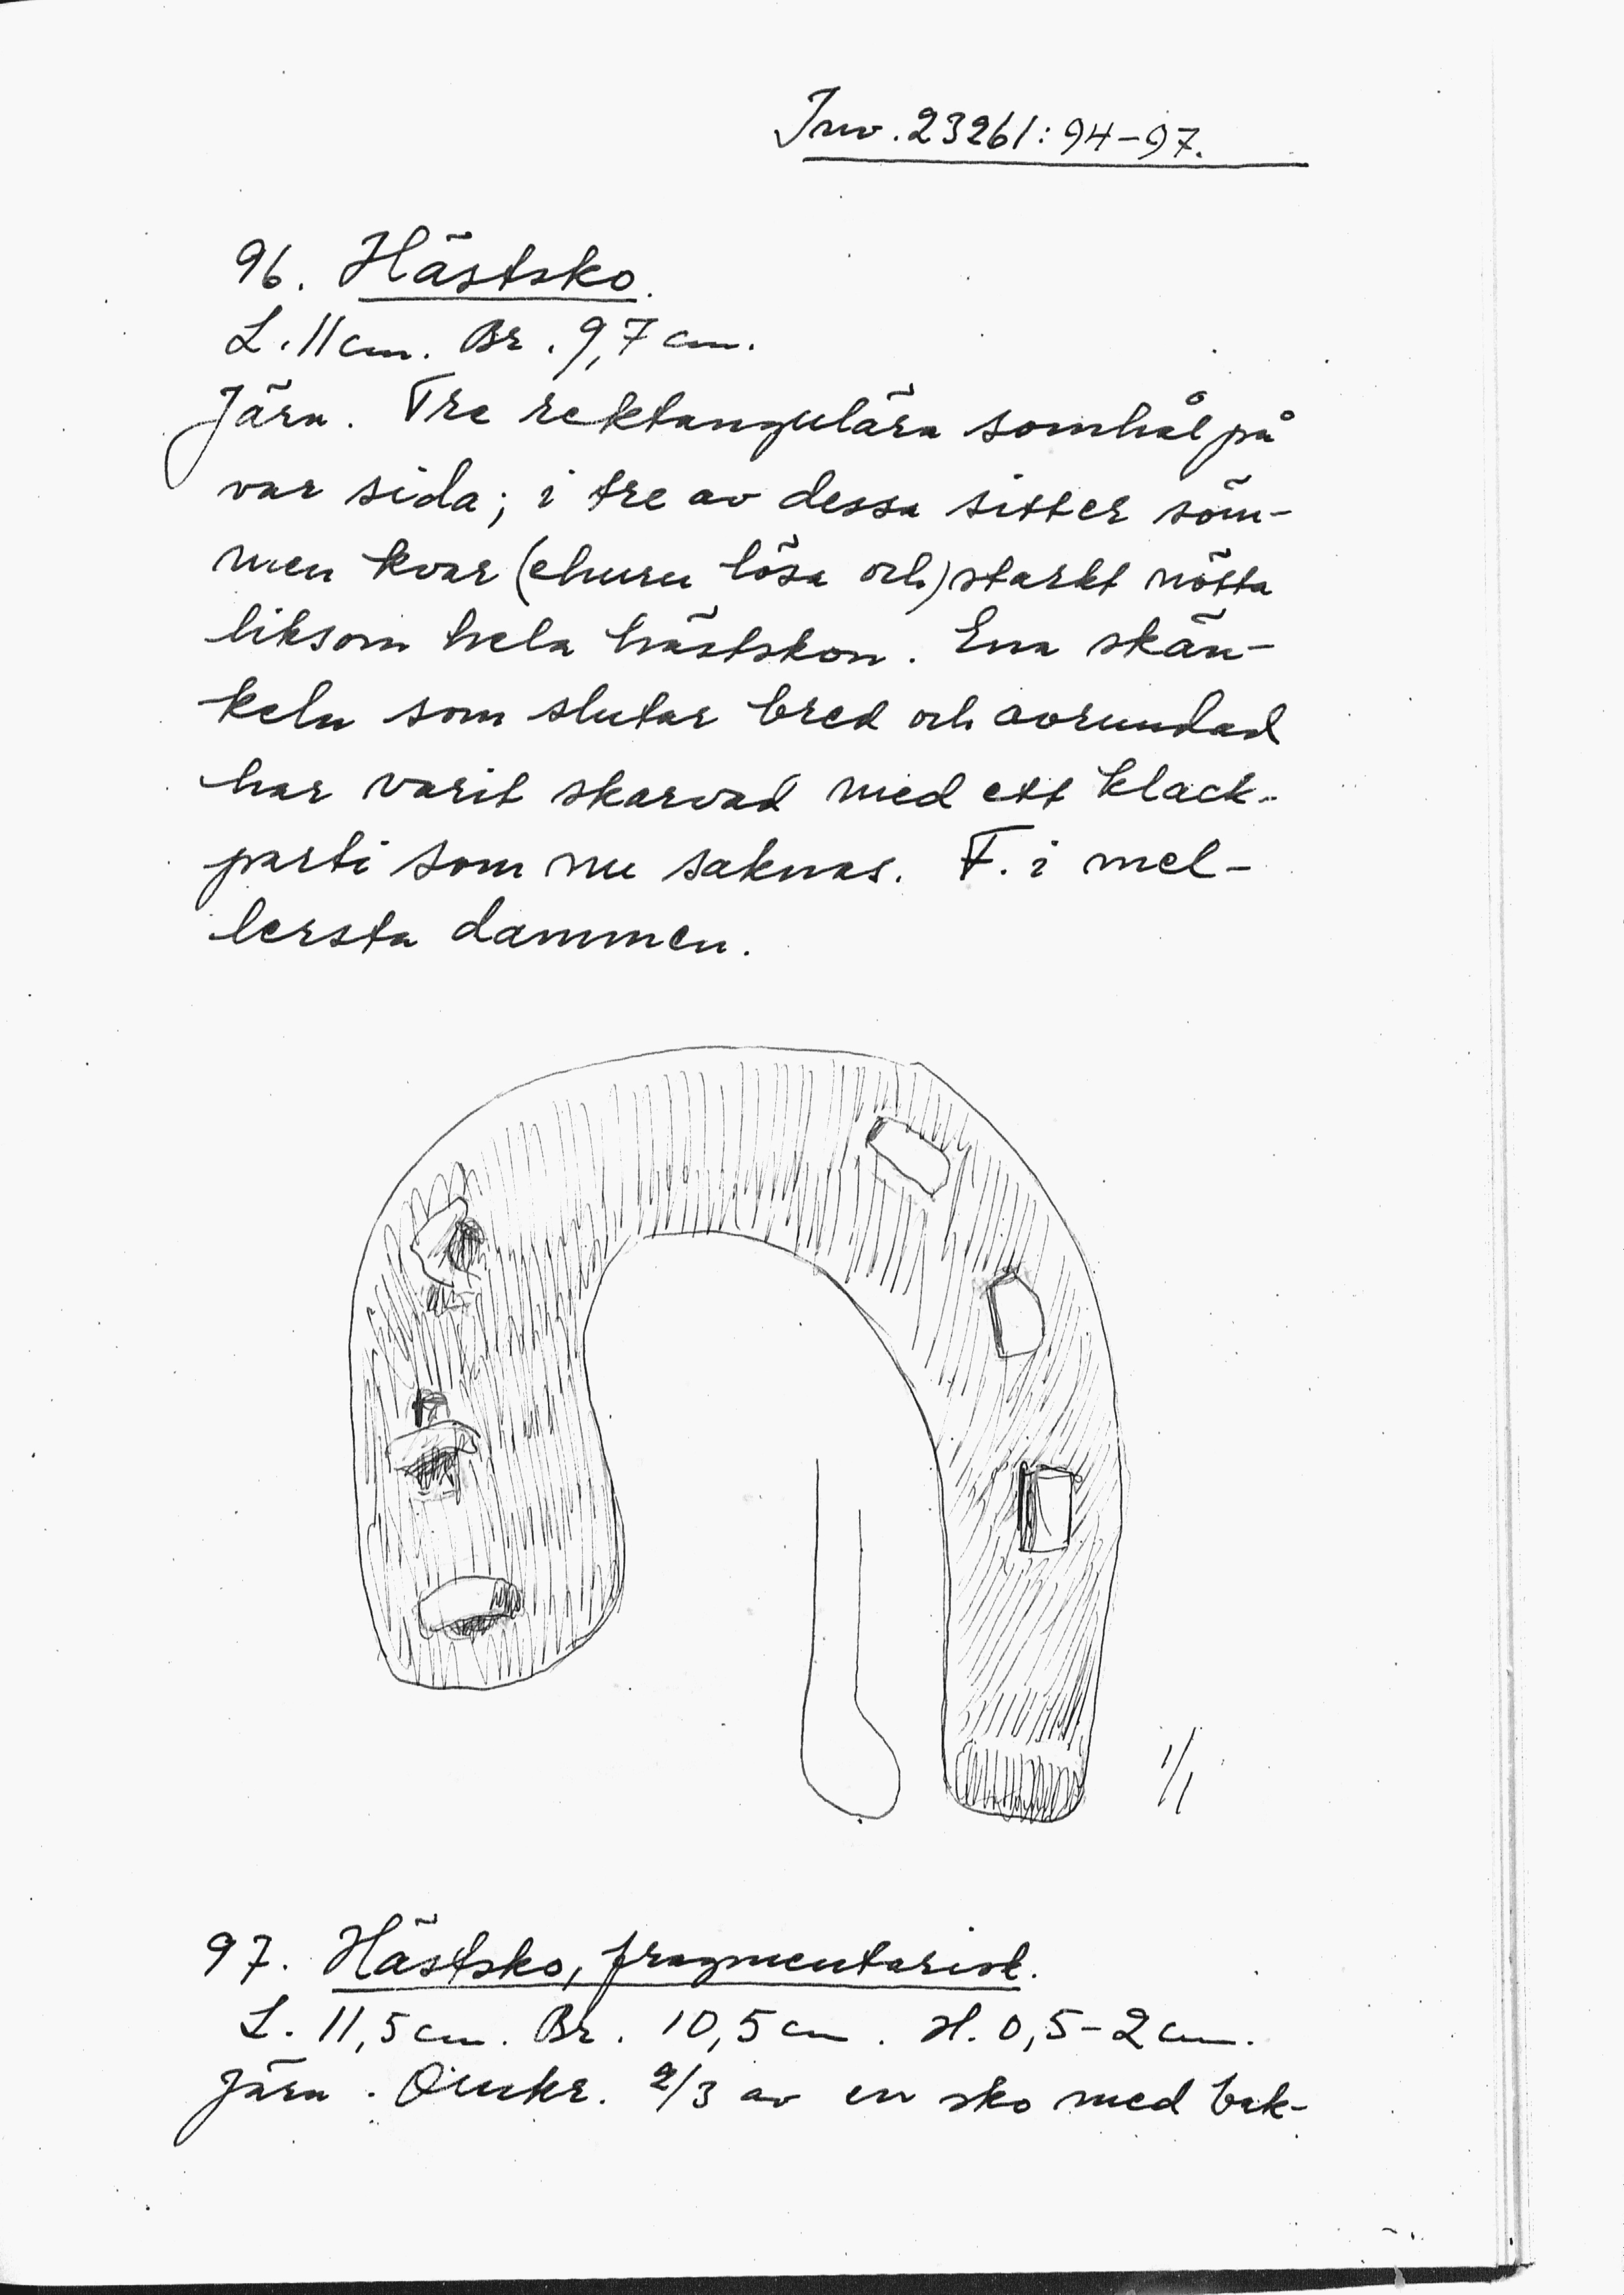 Inv. 23261: 94-97.
96. Hästsko.
L. 11 cm. Br. 9,7 cm.
Järn. Tre rektangulära sömhål på
var sida; i tre av dessa sitter söm-
men kvar (ehuru lösa och) starkt nötta
liksom hela hästskon. Ena skän-
keln som slutar bred och avrundad
har varit skarvad med ett klack-
parti som nu saknas. F. i mel-
lersta dammen.
1/1
97. Hästsko, fragmentarisk.
L. 11,5 cm. Br. 10,5 cm. H. 0,5-2 cm.
Järn. Omkr. 2/3 av en sko med bak-